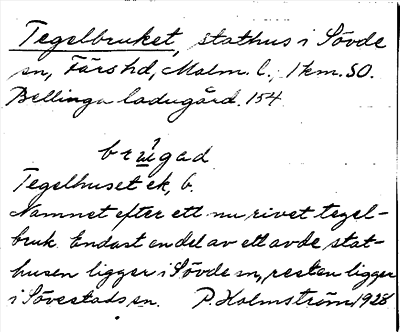 Tegelbruket, stathus i Sövde
sn, Färs hd, Malm. l., 1 km. SO.
Bellinga ladugård. 154
brúgad
Tegelhuset ek, b.
Namnet efter ett nu rivet tegel-
bruk. Endast en del av ett av de stat-
husen ligger i Sövde sn, resten ligger
i Sövestads sn. P. Holmström 1928